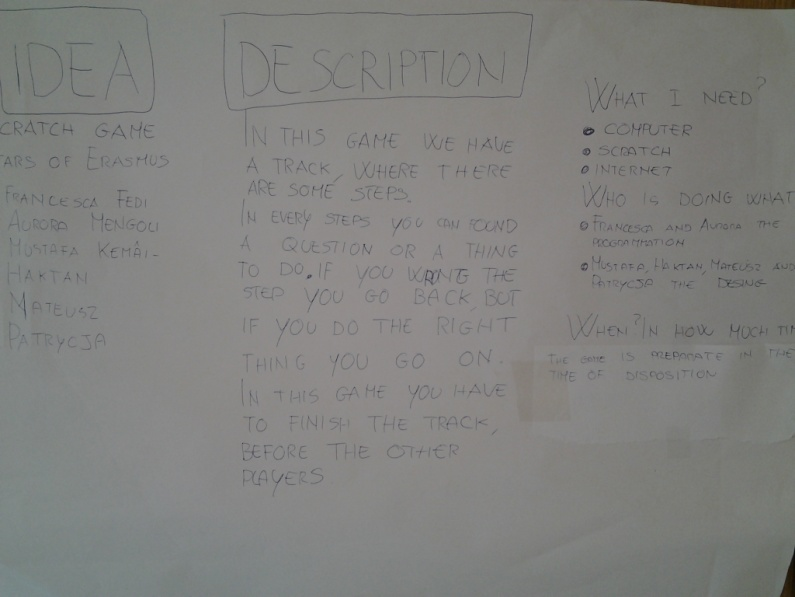 IDEA
CRATCH GAME
ARS OF ERASMUS
FRANCESCA FEDI
AURORA MENGOLI
MUSTAFA KEMÂL-
HAKTAN
MATEUSZ
PATRYCJA
DESCRIPTION
IN THIS GAME WE HAVE
A TRACK, WHERE THERE
ARE SOME STEPS.
IN EVERY STEPS YOU CAN FOUND
A QUESTION OR A THING
TO DO. IF YOU WRONG THE
STEP YOU GO BACK, BUT
IF YOU DO THE RIGHT
THING YOU GO ON.
IN THIS GAME YOU HAVE
TO FINISH THE TRACK,
BEFORE THE OTHER
PLAYERS
WHAT I NEED?
COMPUTER
SCRATCH
INTERNET
WHO IS DOING WHAT
FRANCESCA AND AURORA THE
PROGRAMMATION
MUSTAFA, HAKTAN, MATEUSZ AND
PATRYCJA THE DESING
WHEN? IN HOW MUCH TIM
THE GAME IS PREPARATE IN THE
TIME OF DISPOSITION